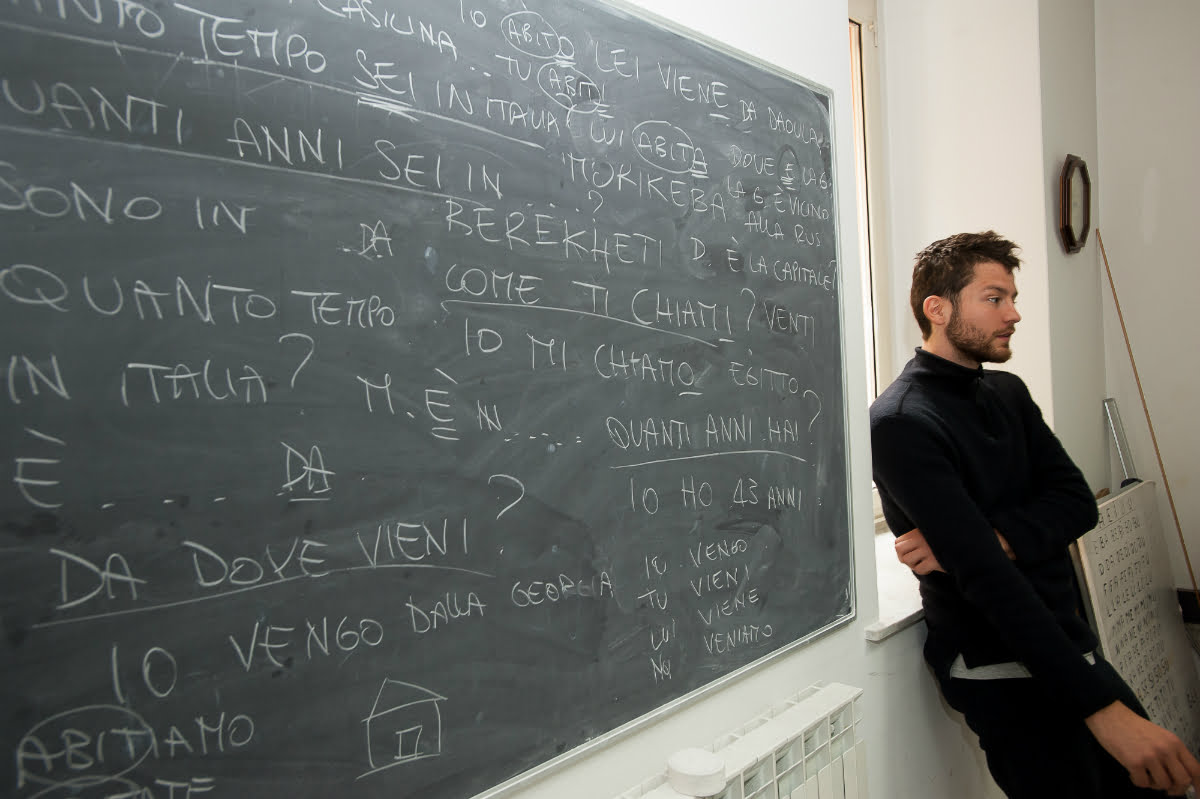 CASIUNA
IO ABITO
LEI VIENE DA DAOULA
TEMPO SEI IN ITALIA
TU ABITI
LUI ABITA
DOVE È LA G.
LA G. È VICINO
ALLA RUS
UANTI ANNI SEI IN ....?
MORIKEBA
SONO IN
DA
BEREKHETI D. È LA CAPITALE?
QUANTO TEMPO
COME TI CHIAMI? VENTI
IN ITALIA?
IO MI CHIAMO EGITTO
M. È IN .....
QUANTI ANNI HAI?
È .... DA ?
IO HO 43 ANNI
DA DOVE VIENI
IO VENGO DALLA GEORGIA
IO VENGO
TU VIENI
LUI VIENE
NOI VENIAMO
ABITIAMO